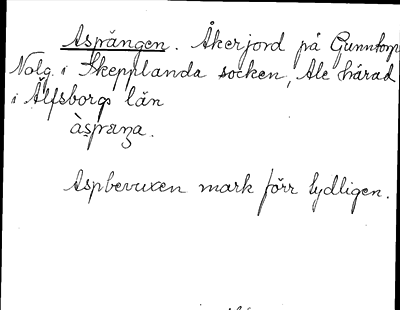 Aspängen. Åkerjord på Gunntorp
Nolg. i Skepplanda socken, Ale härad
i Älfsborgs län
àspæŋa.
Aspbevuxen mark förr tydligen.